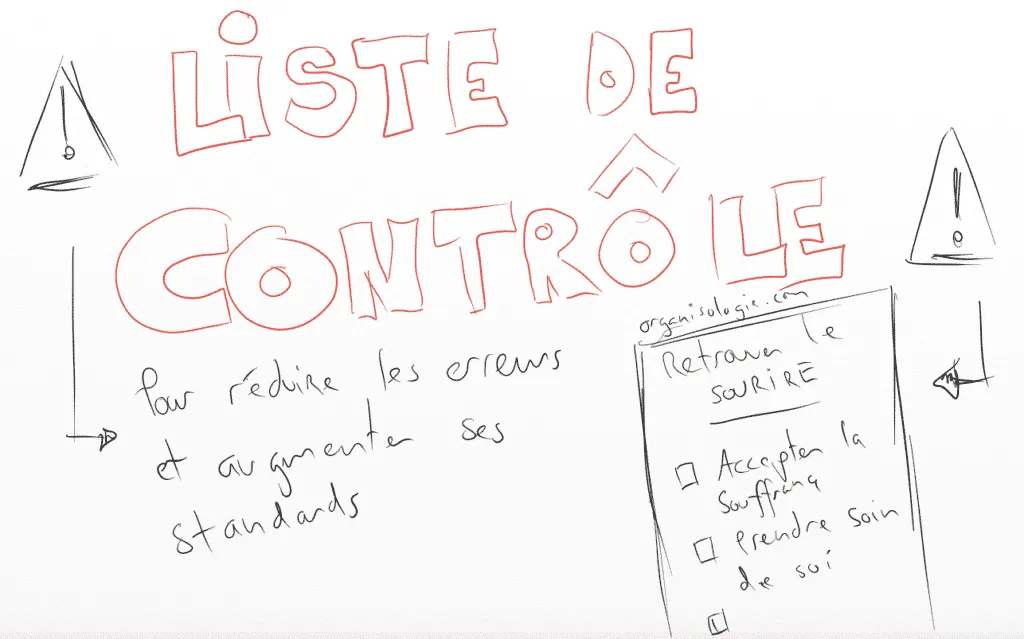 LISTE DE
CONTRÔLE
Pour réduire les erreurs
et augmenter ses
standards
organisologie.com
Retrouver le
SOURIRE
Accepter la
Souffrance
Prendre soin
de soi